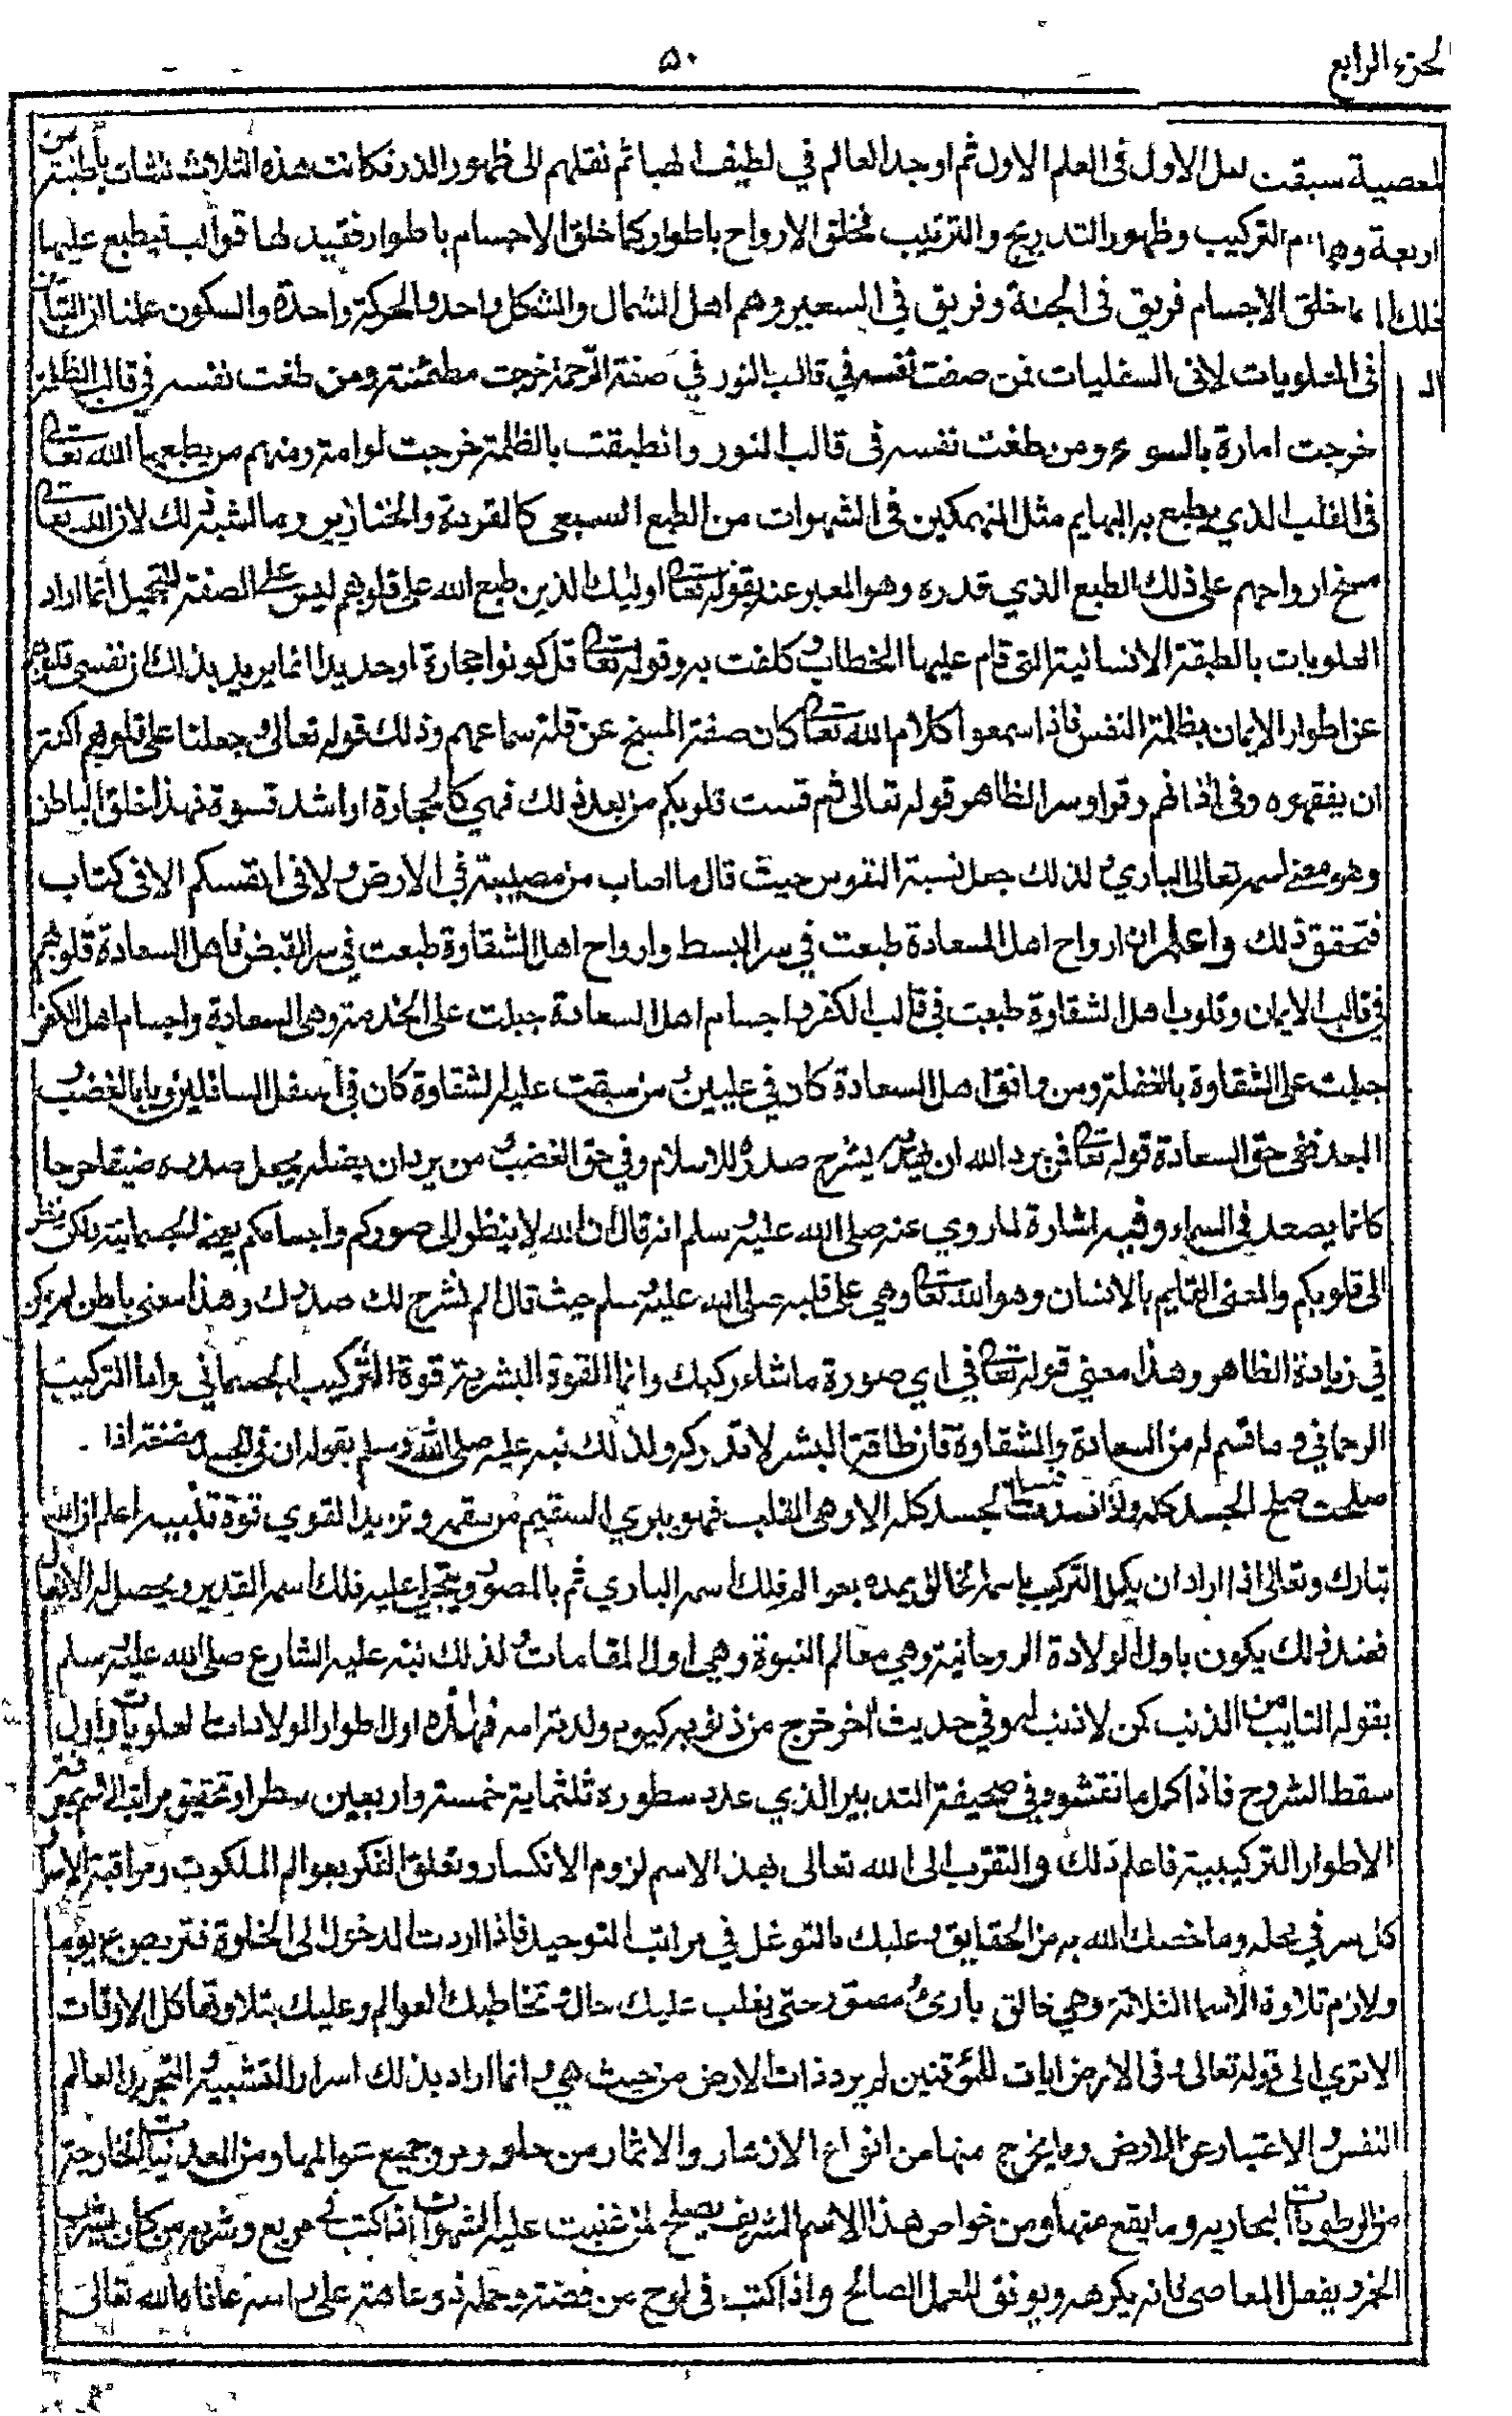 الجزء الرابع
٥٠
المعصية سبقت لعل الاول فى العلم الاول ثم اوجد العالم في لطيف الهبا ثم نقلهم الى ظهور الذر فكانت هذه الثلاث نشات باطنة من
اربعة التركيب وظهور التدريج والترتيب فخلق الارواح باطوار كما خلق الاجسام باطوار فقيد لها قوالب تنطبع عليها
خلق الاجسام فريق فى الجنة وفريق في السعير وهم اهل الشمال والشكل واحد والحركة واحدة والسكون علنا ان
فى العلويات لافى السفليات فمن صفت نفسه في قالب النور في صفة الرحمة خرجت مطمئنة ومن طغت نفسه في قالب الظلمة
خرجت امارة بالسوء ومن طغت نفسه فى قالب النور وانطبقت بالظلمة خرجت لوامة ومنهم من يطبع الله تعالى
فى القلب الذي يطبع به البهايم مثل المنهمكين فى الشهوات من الطبع السبعى كالقردة والخنازير وما اشبه ذلك لان الله تعالى
مسخ ارواحهم على ذلك الطبع الذي قدره وهو المعبر عنه بقوله تعالى اوليك الذين طبع الله على قلوبهم ليس على الصفة انما اراد
العلويات بالطبقة الانسانية التى قام عليها الخطاب وكلفت به وقوله تعالى قل كونوا حجارة او حديدا انما يريد بذلك ان نفسى قلوبهم
عن اطوار الايمان بظلمة النفس فاذا سمعوا كلام الله تعالى كان صفة المسخ عن قلة سماعهم وذلك قوله تعالى وجعلنا على قلوبهم اكنة
ان يفقهوه وفى اذانهم وقرا وسر الظاهر قوله تعالى ثم قست قلوبكم من بعد ذلك فهى كالحجارة او اشد قسوة فهذا خلق الباطن
وهو معنى اسمه تعالى الباري لذلك جعل نسبة النفوس حيث قال ما اصاب من مصيبة في الارض ولا فى انفسكم الا فى كتاب
فتحقق ذلك واعلم ان ارواح اهل السعادة طبعت في سر البسط وارواح اهل الشقاوة طبعت في سر القبض فاهل السعادة قلوبهم
في قالب الايمان وقلوب اهل الشقاوة طبعت فى قالب الكفر واجسام اهل السعادة جبلت على الخدمة وهى السعادة واجسام اهل الكفر
جبلت على الشقاوة بالغفلة ومن وافق اهل السعادة كان في عليين ومن سبقت عليه الشقاوة كان فى اسفل السافلين وبا بالغضب و
البعد ففى حق السعادة قوله تعالى فمن يرد الله ان يهديه يشرح صدره للاسلام وفي حق الغضب ومن يرد ان يضله يجعل صدره ضيقا حرجا
كانما يصعد في السماء وفيه اشارة لما روي عنه صلى الله عليه وسلم انه قال ان الله لا ينظر الى صوركم واجسامكم يعنى الجسمانية ولكن ينظر
الى قلوبكم والمعنى القايم بالانسان وهو الله تعالى وهي على قلبه صلى الله عليه وسلم حيث قال الم نشرح لك صدرك وهذا معنى باطن لم يكن
في زيادة الظاهر وهذا معنى قوله تعالى في اي صورة ما شاء ركبك وانما القوة البشرية قوة التركيب الجسماني واما التركيب
الرحماني وما قسم له من السعادة والشقاوة فان طاقة البشر لا تدركه ولذلك نبه عليه صلى الله عليه وسلم بقوله ان فى الجسد مضغة اذا
صلحت صلح الجسد كله واذا فسدت فسد الجسد كله الا وهى القلب فهو يبري السقيم من سقمه وتزيد القوي قوة تنبيه اعلم ان الله
تبارك وتعالى اذا اراد ان يكمل التركيب باسمه الخالق يمده بعوالم فلك اسمه الباري ثم بالمصور ويتجلى عليه فلك اسمه القدير ويحصل له
فعند ذلك يكون باول الولادة الروحانية وهي معالم النبوة وهي اول المقامات ولذلك نبه عليه الشارع صلى الله عليه وسلم
بقوله التايب من الذنب كمن لا ذنب له وفي حديث اخر خرج من ذنوبه كيوم ولدته امه فهذه اول اطوار الولادات العلويات واول
سقط الشروح فاذا كمل ما نقشوه في صحيفة التدبير الذي عدد سطوره ثلثماية خمسة واربعين سطرا وتحقيق مراتب الاسم
الاطوار التركيبية فاعلم ذلك والتقرب الى الله تعالى بهذ الاسم لزوم الانكسار وتعلق الفكر بعوالم الملكوت ومراقبة الاسرار
كل سر في محله وما خصك الله به من الحقايق وعليك بالتوغل في مراتب التوحيد فاذا اردت الدخول الى الخلوة فتربص ع يوما
ولازم تلاوة الاسما الثلاثة وهي خالق بارئ مصور حتى يغلب عليك حال وتخاطبك العوالم وعليك بتلاوتها كل الاوقات
الا ترى الى قوله تعالى وفى الارض ايات للموقنين لم يرد ذات الارض من حيث هي وانما اراد بذلك اسرار التشبيه والتجريد العالم
النفس والاعتبار عن الارض وما يخرج منها من انواع الازهار والاثمار من حلو ومر وجميع عوالمها ومن المعدنيات الخارجة
من الرطوبات البخارية وما يقع منها ومن خواص هذا الاسم الشريف يصلح لمن غلبت عليه الشهوات اذا كتب في مربع وشربه من كان يشرب
الخمر ويفعل المعاصى فانه يكرهه ويوفق للعمل الصالح واذا كتب فى لوح من فضة وحمله ذو عاهة على راسه عافاه الله تعالى